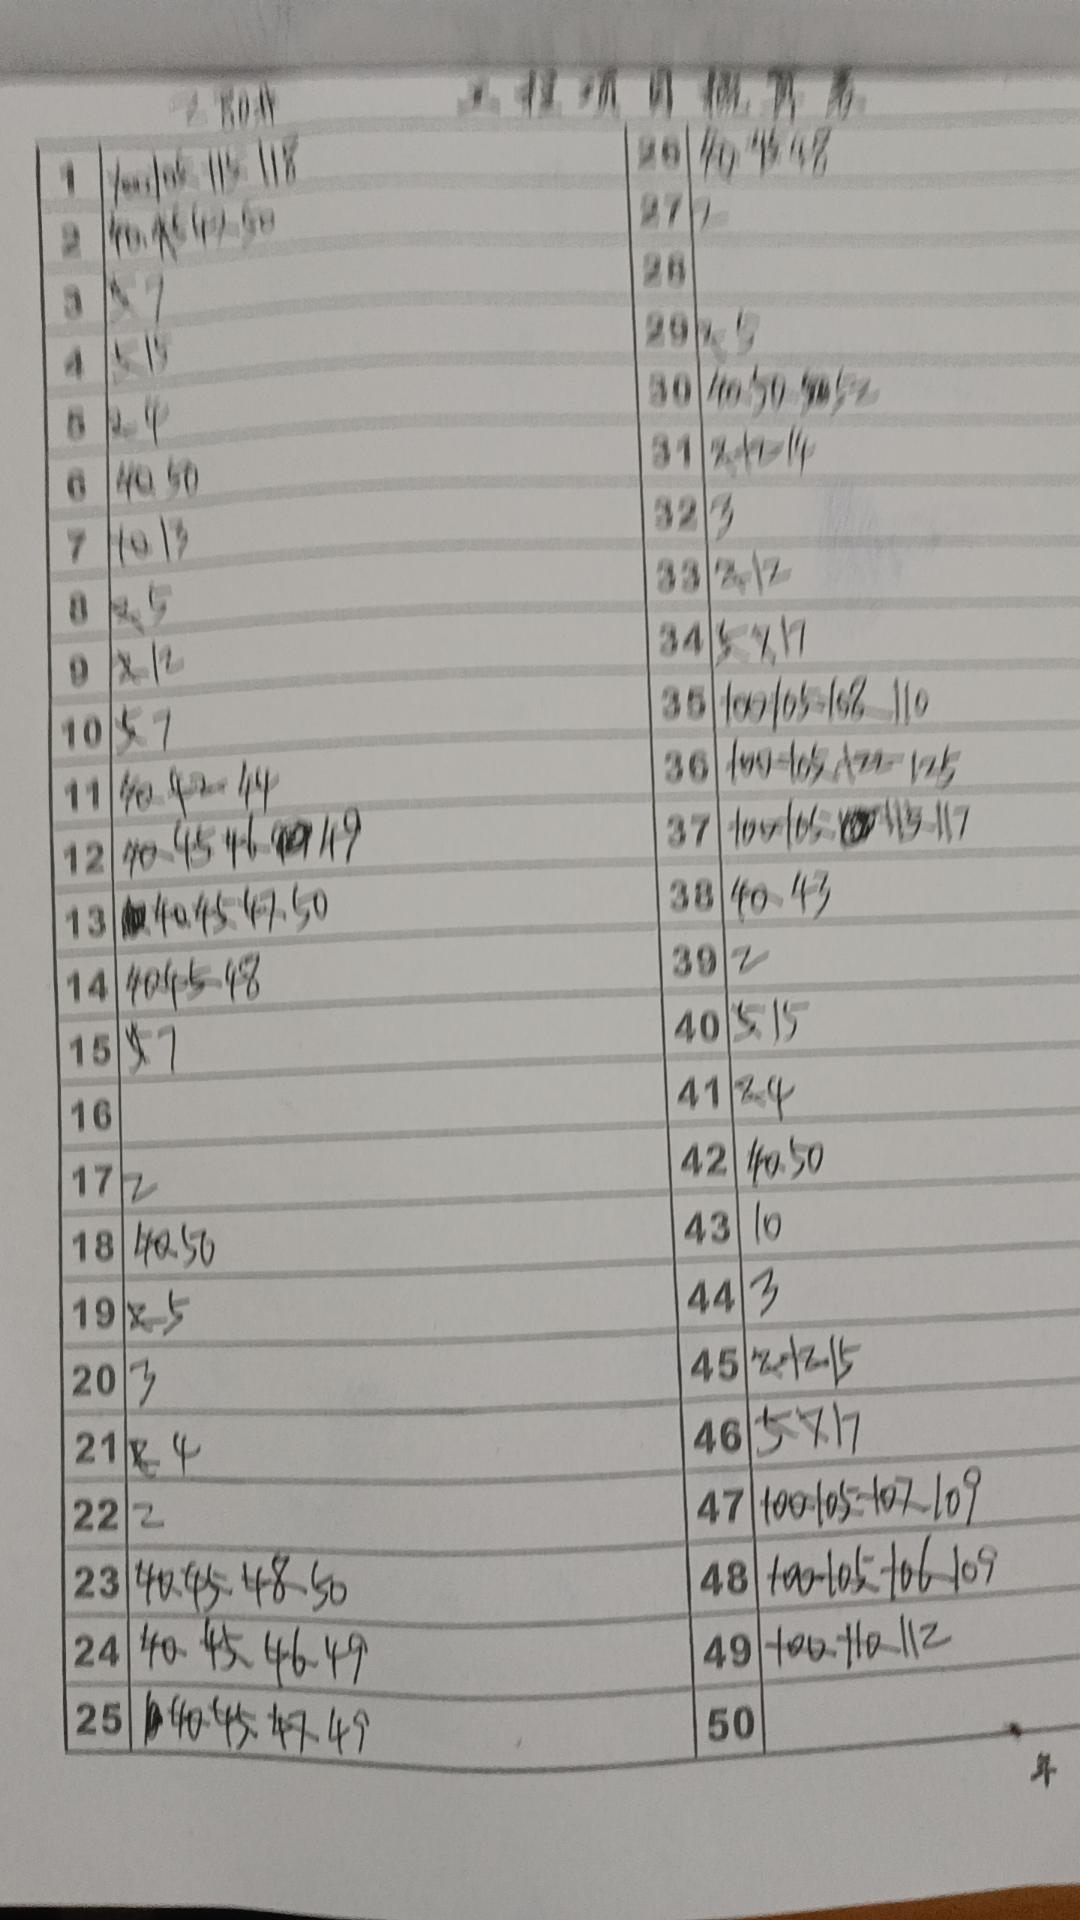 工程项目概算表
1 100 105 115 118
2 40 45 47 50
3 5 7
4 5 15
5 2 4
6 40 50
7 10 13
8 2 5
9 2 12
10 5 7
11 40 42 44
12 40 45 46 49
13 40 45 47 50
14 40 45 48
15 5 7
16
17 2
18 40 50
19 2 5
20 3
21 2 4
22 2
23 40 45 48 50
24 40 45 46 49
25 40 45 47 49
26 40 45 48
27 2
28
29 2 5
30 40 50 52
31 2 12 14
32 3
33 2 12
34 5 7 17
35 100 105 108 110
36 100 105 122 125
37 100 105 115 117
38 40 43
39 2
40 5 15
41 2 4
42 40 50
43 10
44 3
45 2 12 15
46 5 7 17
47 100 105 107 109
48 100 105 106 109
49 100 110 112
50
年